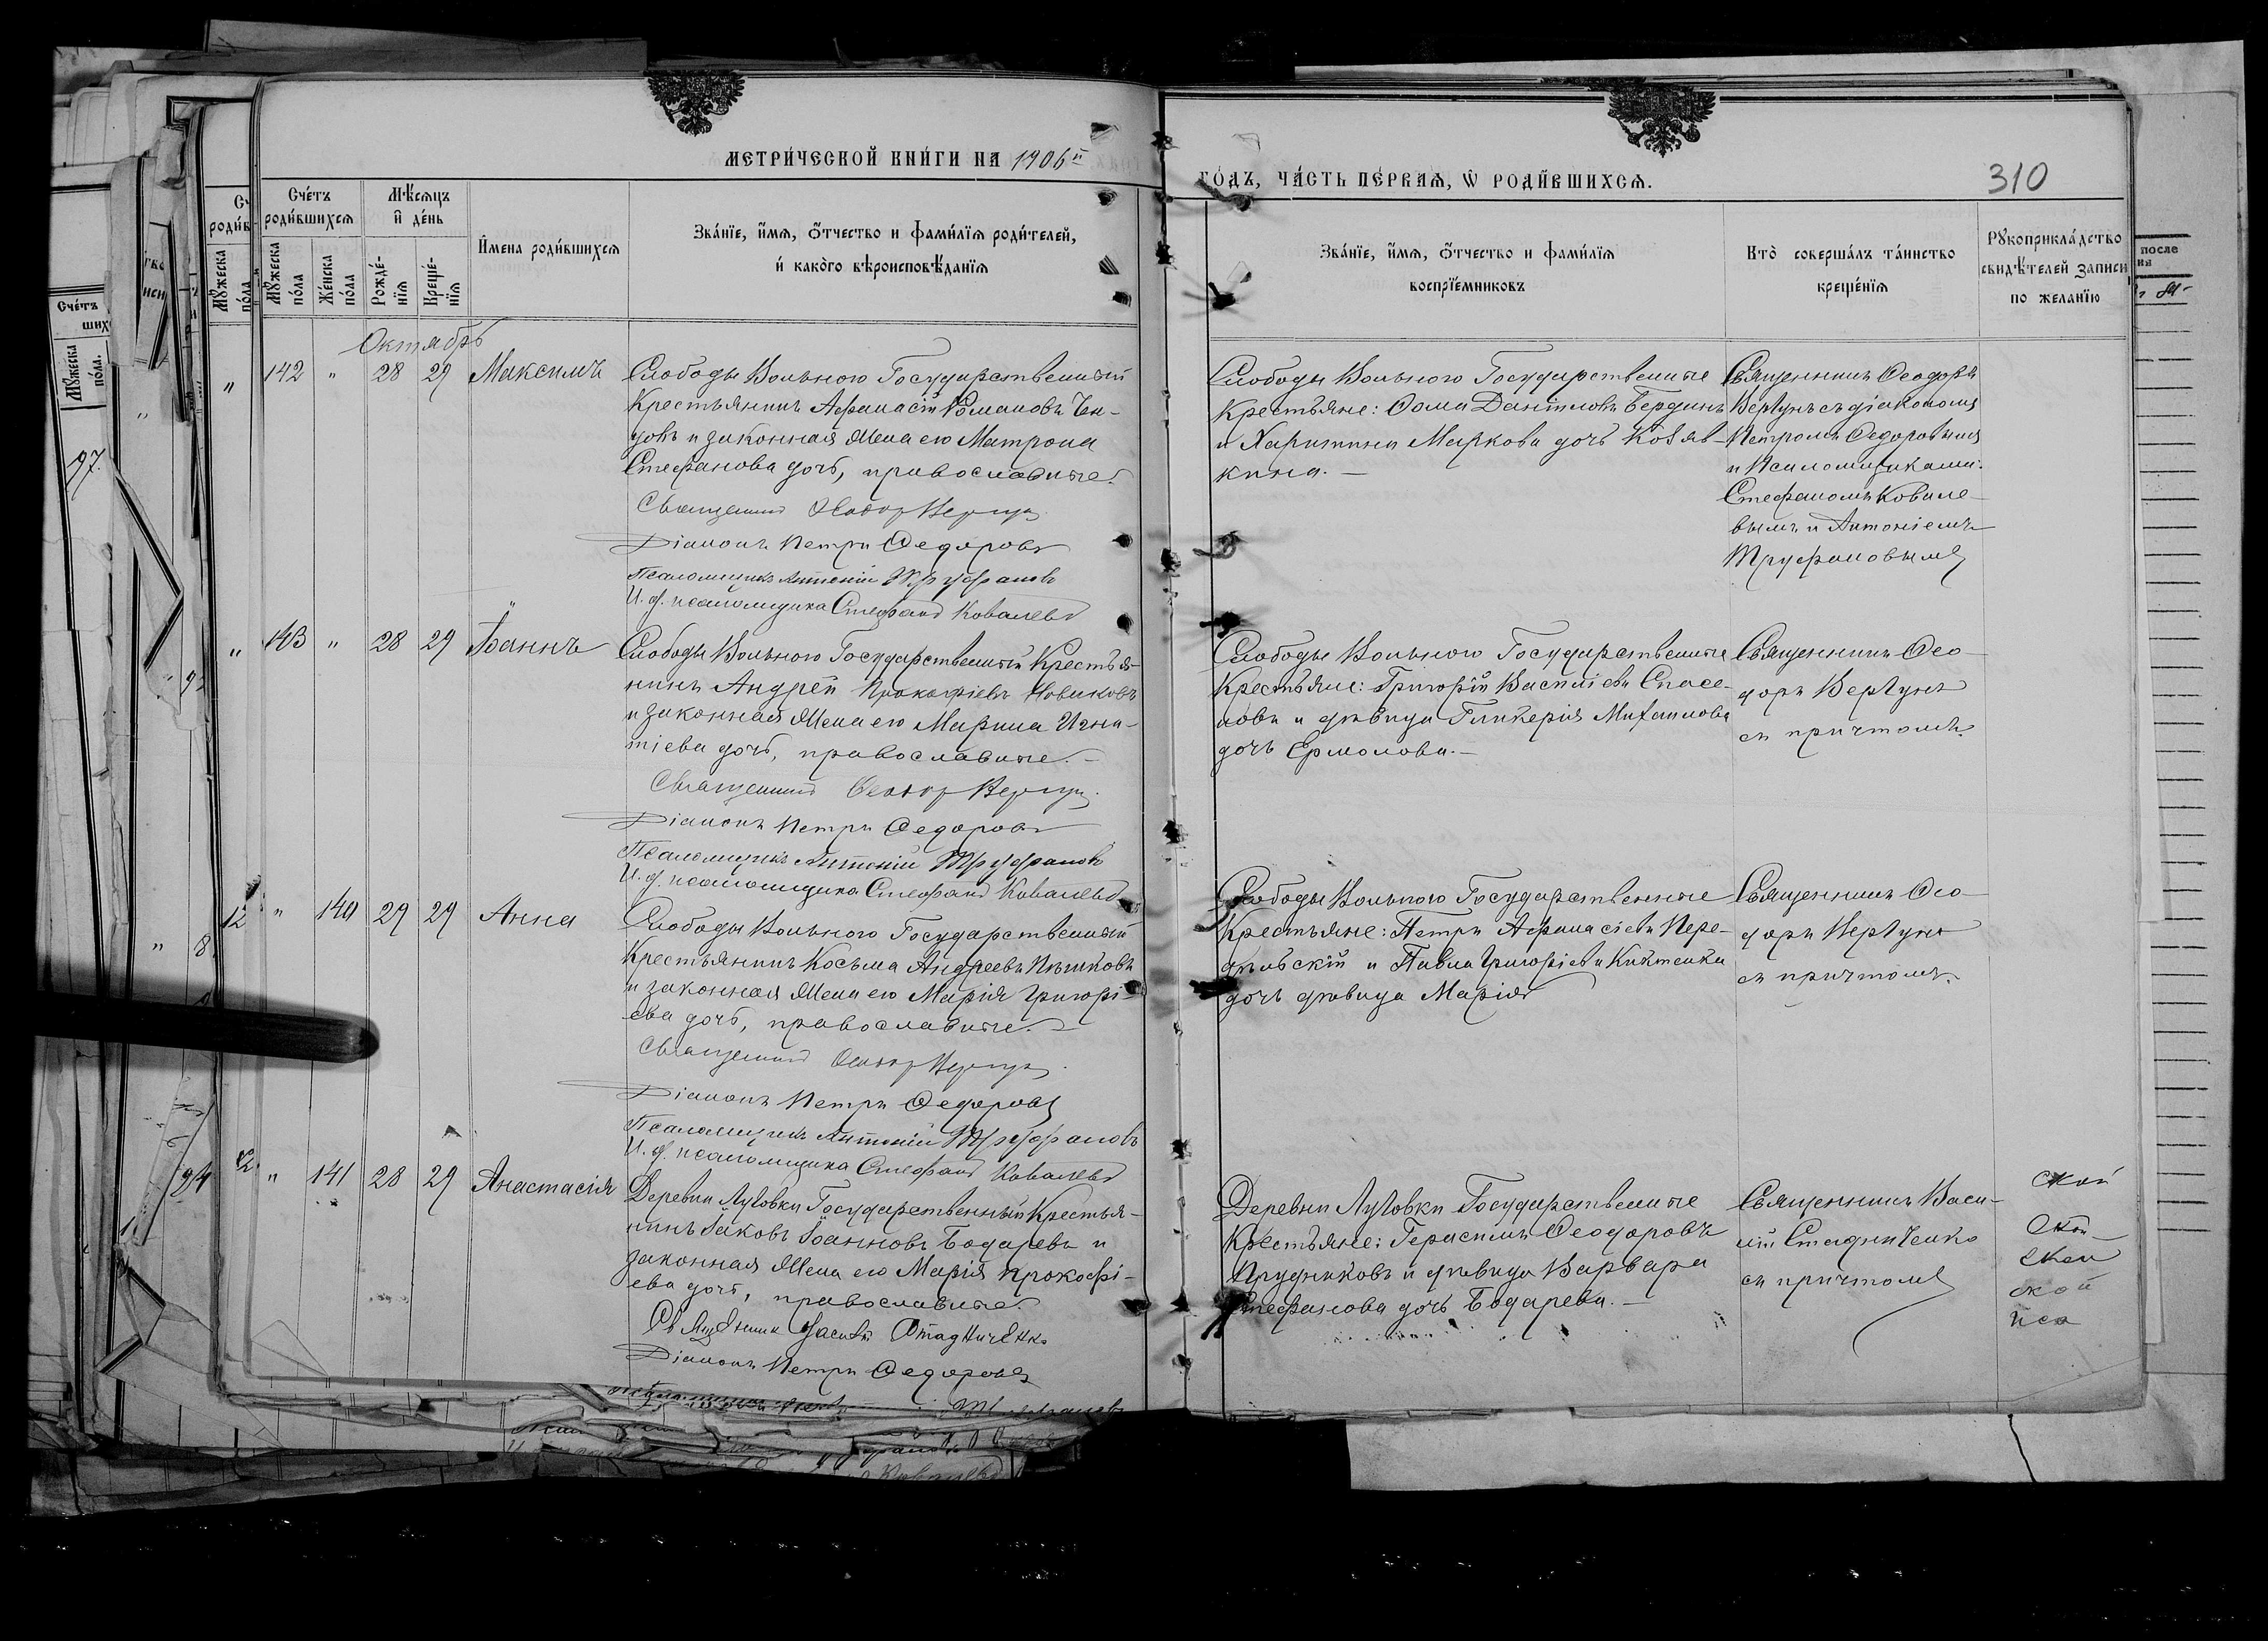 МЕТРИ́ЧЕСКОЙ КНИ́ГИ НА 1906й
ГО́ДЪ, ЧА́СТЬ ПЕ́РВАЯ, Ѡ РОДИ́ВШИХСЯ.
310
Сче́тъ родѝвшихся
Мѣ́сяцъ и де́нь
Мꙋ́жеска по́ла
Же́нска по́ла
Рожде́нїя
Креще́нїя
И҆мена роди́вшихся
Зва́нїе, и҆́мя, ѻ҆́тчество и фами́лїя роди́телей,
и҆ како́го вѣроисповѣ́данїя
Зва́нїе, и҆́мя, ѻ҆́тчество и фами́лїя
воспрїе́мниковъ
Кто̀ соверша́лъ та́инство
креще́нїя
Рꙋкоприкла́дство
свидѣ́телей записи
по желанїю
Октябрь
142 " 28 29 Максимъ
Слободы Вольного Государственный
Крестьянинъ Афанасій Романовъ
и законная жена его Матрона
Стефанова дочь, православные.
Священник Ѳеодор Вергун
Діаконъ Петръ Ѳедоровъ
Псаломщикъ Антоній Труфановъ
И. д. псаломщика Стефанъ Ковалевъ
Слободы Вольного Государственные
Крестьяне: Ѳома Даніиловъ Бердинъ
и Харитина Маркова дочь Козяв-
кина.—
Священникъ Ѳеодоръ
Вергунъ съ діакономъ
Петромъ Ѳедоровымъ
и Псаломщиками:
Стефаномъ Ковале-
вымъ и Антоніемъ
Труфановымъ
143 " 28 29 Іоаннъ
Слободы Вольного Государственный Крестья-
нинъ Андрей Прокофіевъ Новиковъ
и законная жена его Марина Игна-
тіева дочь, православные.—
Священник Ѳеодор Вергун.
Діаконъ Петръ Ѳедоровъ
Псаломщикъ Антоній Труфановъ
И. д. псаломщика Стефанъ Ковалевъ
Слободы Вольного Государственные
Крестьяне: Григорій Василіевъ Спасе-
новъ и дѣвица Гликерія Михаилова
дочь Ермолова.—
Священникъ Ѳео-
доръ Вергунъ
съ причтомъ.
" 140 29 29 Анна
Слободы Вольного Государственный
Крестьянинъ Косьма Андреевъ Пѣшковъ
и законная жена его Марія Григорі-
ева дочь, православные.—
Священник Ѳеодор Вергун.
Діаконъ Петръ Ѳедоровъ
Псаломщикъ Антоній Труфановъ
И. д. псаломщика Стефанъ Ковалевъ
Слободы Вольного Государственные
Крестьяне: Петръ Афанасіевъ Пере-
дѣльскій и Павла Григоріева Киктенка
дочь дѣвица Марія
Священникъ Ѳео-
доръ Вергунъ
съ причтомъ.
" 141 28 29 Анастасія
Деревни Луговки Государственный Крестья-
нинъ Іаковъ Іоанновъ Бодаревъ и
законная жена его Марія Прокофі-
ева дочь, православные.
Священник Василій Стадниченко
Діаконъ Петръ Ѳедоровъ
Деревни Луговки Государственные
Крестьяне: Герасимъ Ѳеодоровъ
Прудниковъ и дѣвица Варвара
Стефанова дочь Бодарева.—
Священникъ Васи-
лій Стадниченко
съ причтомъ